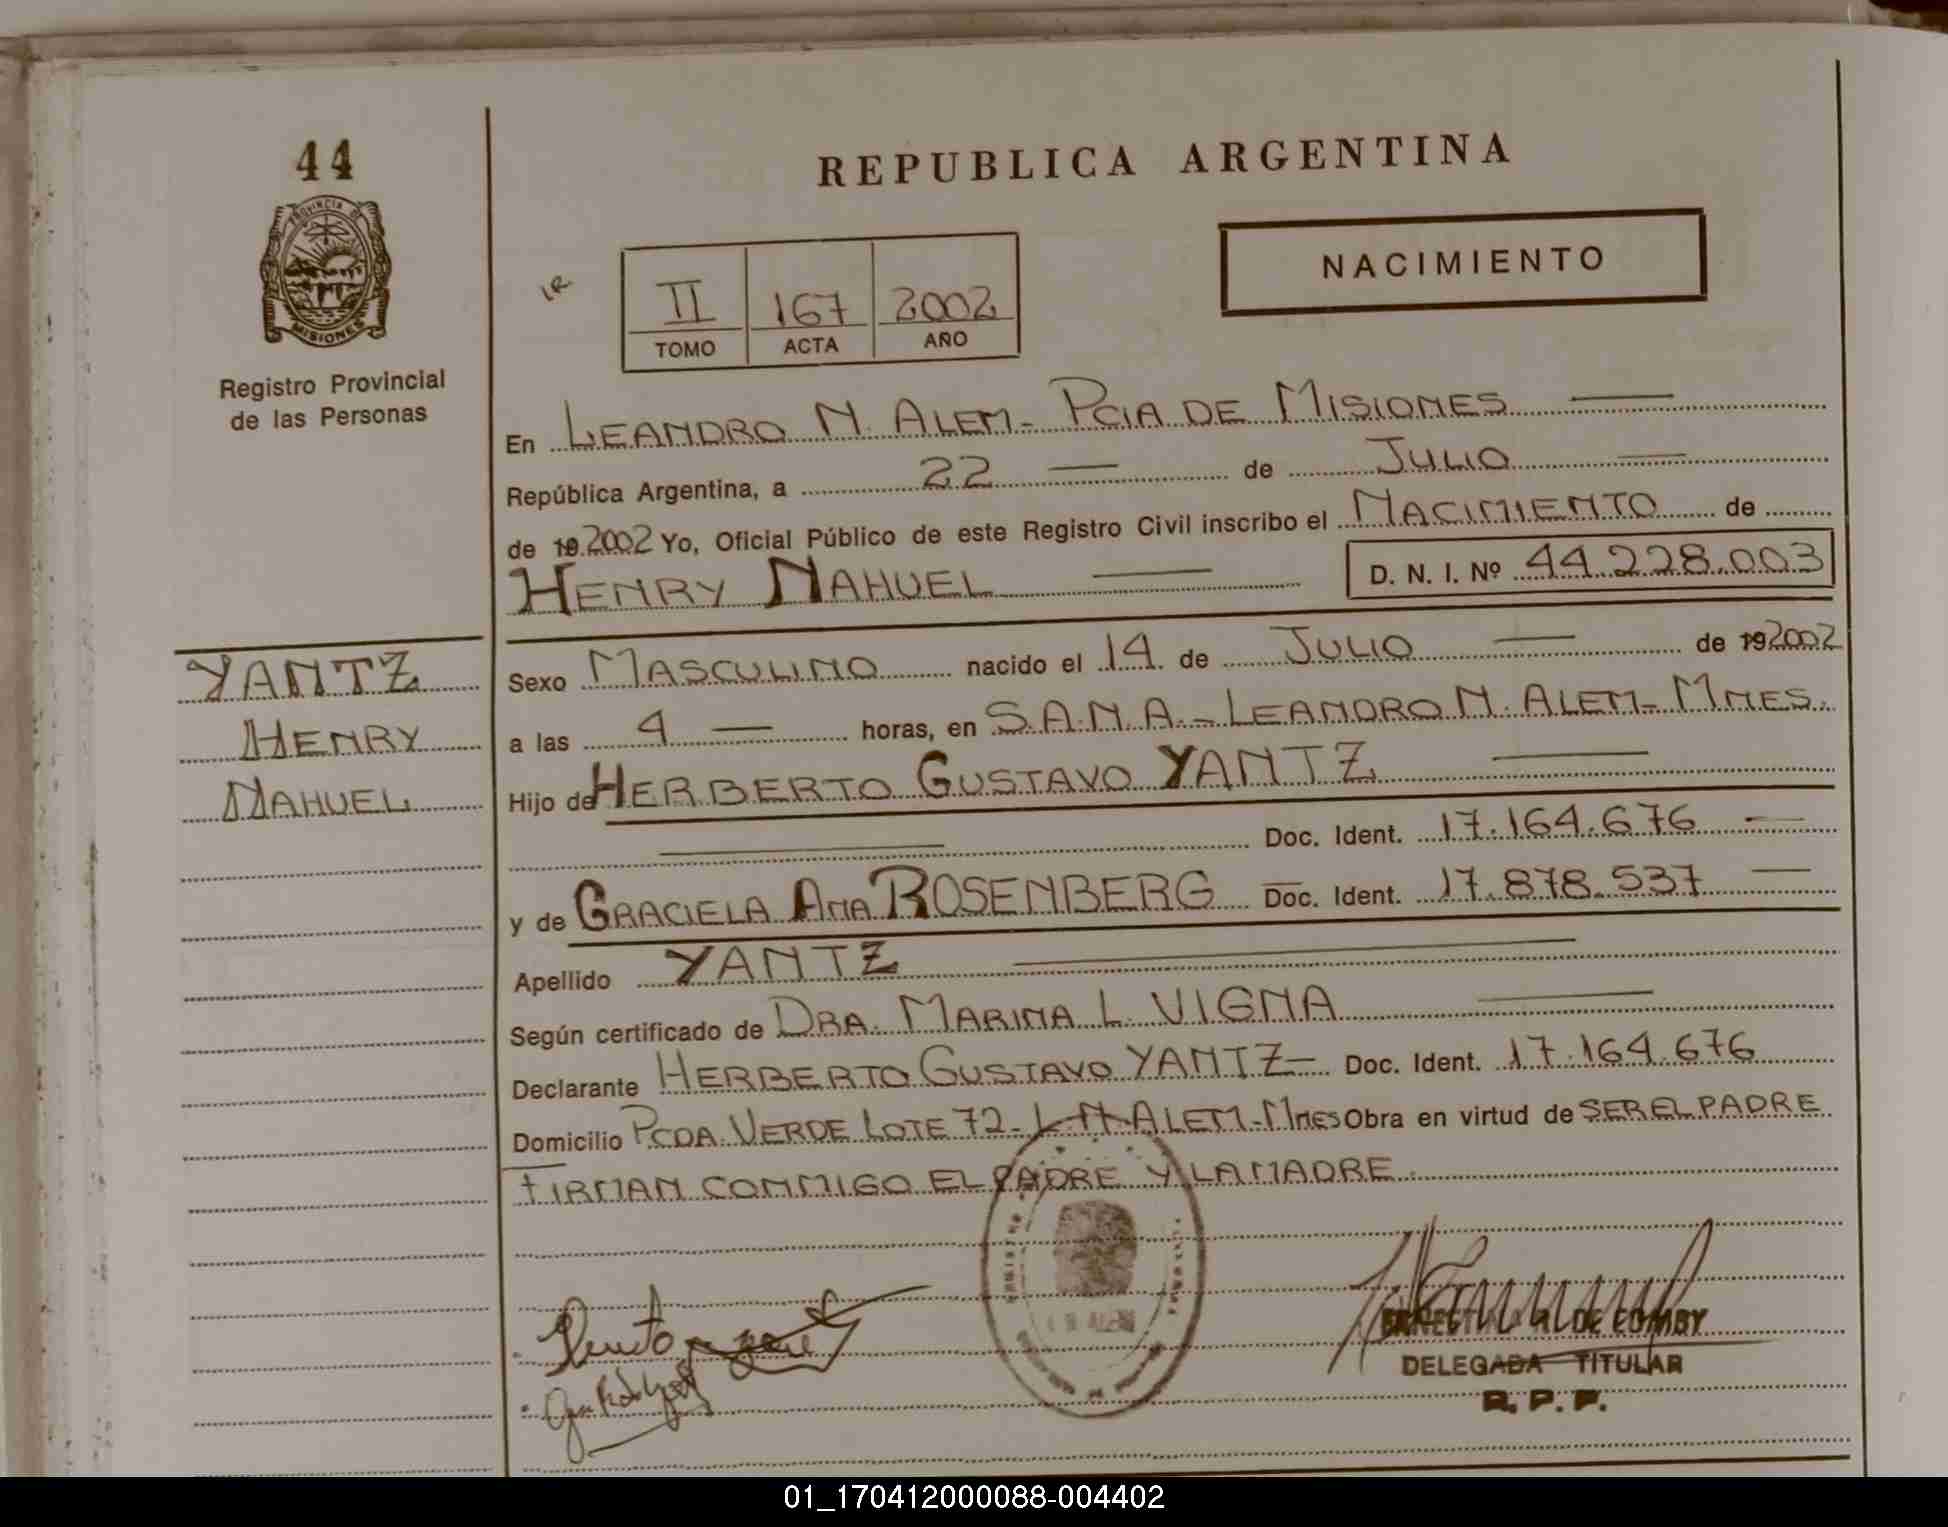 44
PROVINCIA DE
MISIONES
Registro Provincial
de las Personas
YANTZ
HENRY
NAHUEL
REPUBLICA ARGENTINA
NACIMIENTO
II 167 2002
TOMO ACTA AÑO
En LEANDRO N. ALEM - PCIA DE MISIONES
República Argentina, a 22 de JULIO
de 19 2002 Yo, Oficial Público de este Registro Civil inscribo el NACIMIENTO de
HENRY NAHUEL D. N. I. Nº 44.228.003
Sexo MASCULINO nacido el 14 de JULIO de 19 2002
a las 4 horas, en S.A.N.A. - LEANDRO N. ALEM - MNES.
Hijo de HERBERTO GUSTAVO YANTZ
Doc. Ident. 17.164.676
y de GRACIELA ANA ROSENBERG Doc. Ident. 17.878.537
Apellido YANTZ
Según certificado de DRA. MARINA L. VIGNA
Declarante HERBERTO GUSTAVO YANTZ Doc. Ident. 17.164.676
Domicilio PCDA. VERDE LOTE 72 - L.N. ALEM - MNES Obra en virtud de SER EL PADRE
FIRMAN CONMIGO EL PADRE Y LA MADRE.
DE COMBY
DELEGADA TITULAR
R. P. P.
01_170412000088-004402